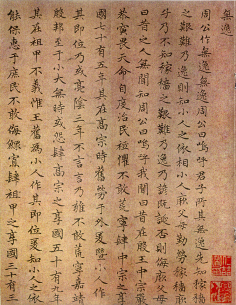 無逸
周公作無逸周公曰嗚呼君子所其無逸先知稼穡
之艱難乃逸則知小人之依相小人厥父母勤勞稼穡
厥子乃不知稼穡之艱難乃逸乃諺既誕否則侮厥父母
曰昔之人無聞知周公曰嗚呼我聞曰昔在殷王中宗嚴
恭寅畏天命自度治民祗懼不敢荒寧肆中宗之享
國七十有五年其在高宗時舊勞于外爰暨小人作
其即位乃或亮陰三年不言言乃雍不敢荒寧嘉靖
殷邦至于小大無時或怨肆高宗之享國五十有九年
其在祖甲不義惟王舊為小人作其即位爰知小人之依
能保惠于庶民不敢侮鰥寡肆祖甲之享國三十有三